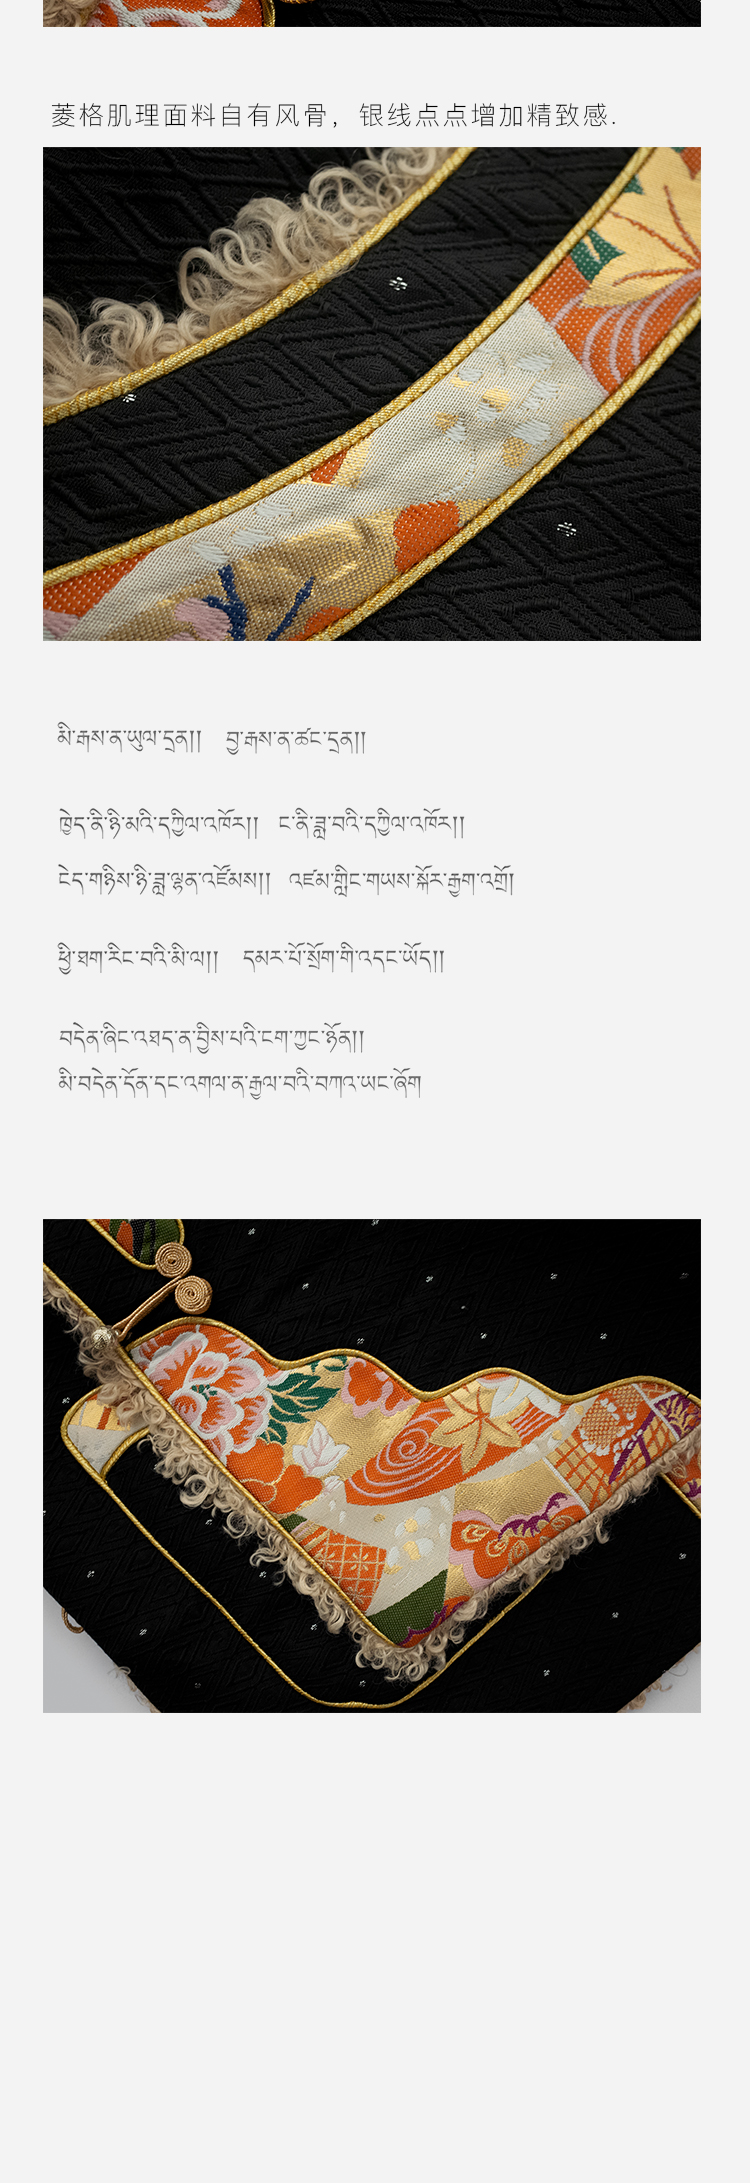 菱格肌理面料自有风骨，银线点点增加精致感.
མི་རྒས་ན་ཡུལ་དྲན།། བྱ་རྒས་ན་ཚང་དྲན།།
ཁྱེད་ནི་ཉི་མའི་དཀྱིལ་འཁོར།། ང་ནི་ཟླ་བའི་དཀྱིལ་འཁོར།།
ངེད་གཉིས་ཉི་ཟླ་ལྷན་འཛོམས།། འཛམ་གླིང་གཡས་སྐོར་རྒྱག་འགྲོ།
ཕྱི་ཐག་རིང་བའི་མི་ལ།། དམར་པོ་སྲོག་གི་འདང་ཡོད།།
བདེན་ཞིང་འཐད་ན་བྱིས་པའི་ངག་ཀྱང་ཉོན།།
མི་བདེན་དོན་དང་འགལ་ན་རྒྱལ་བའི་བཀའ་ཡང་ཞོག